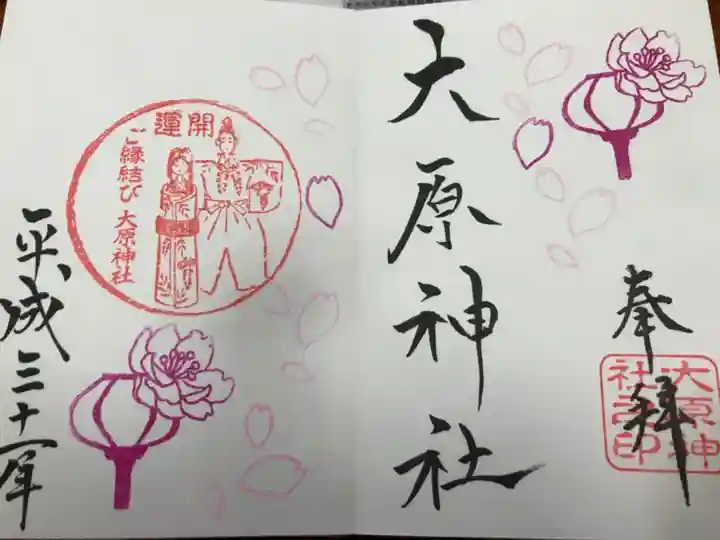 奉拝
大原神
社之印
大原神社
開運
ご縁結び
大原神社
平成三十一年